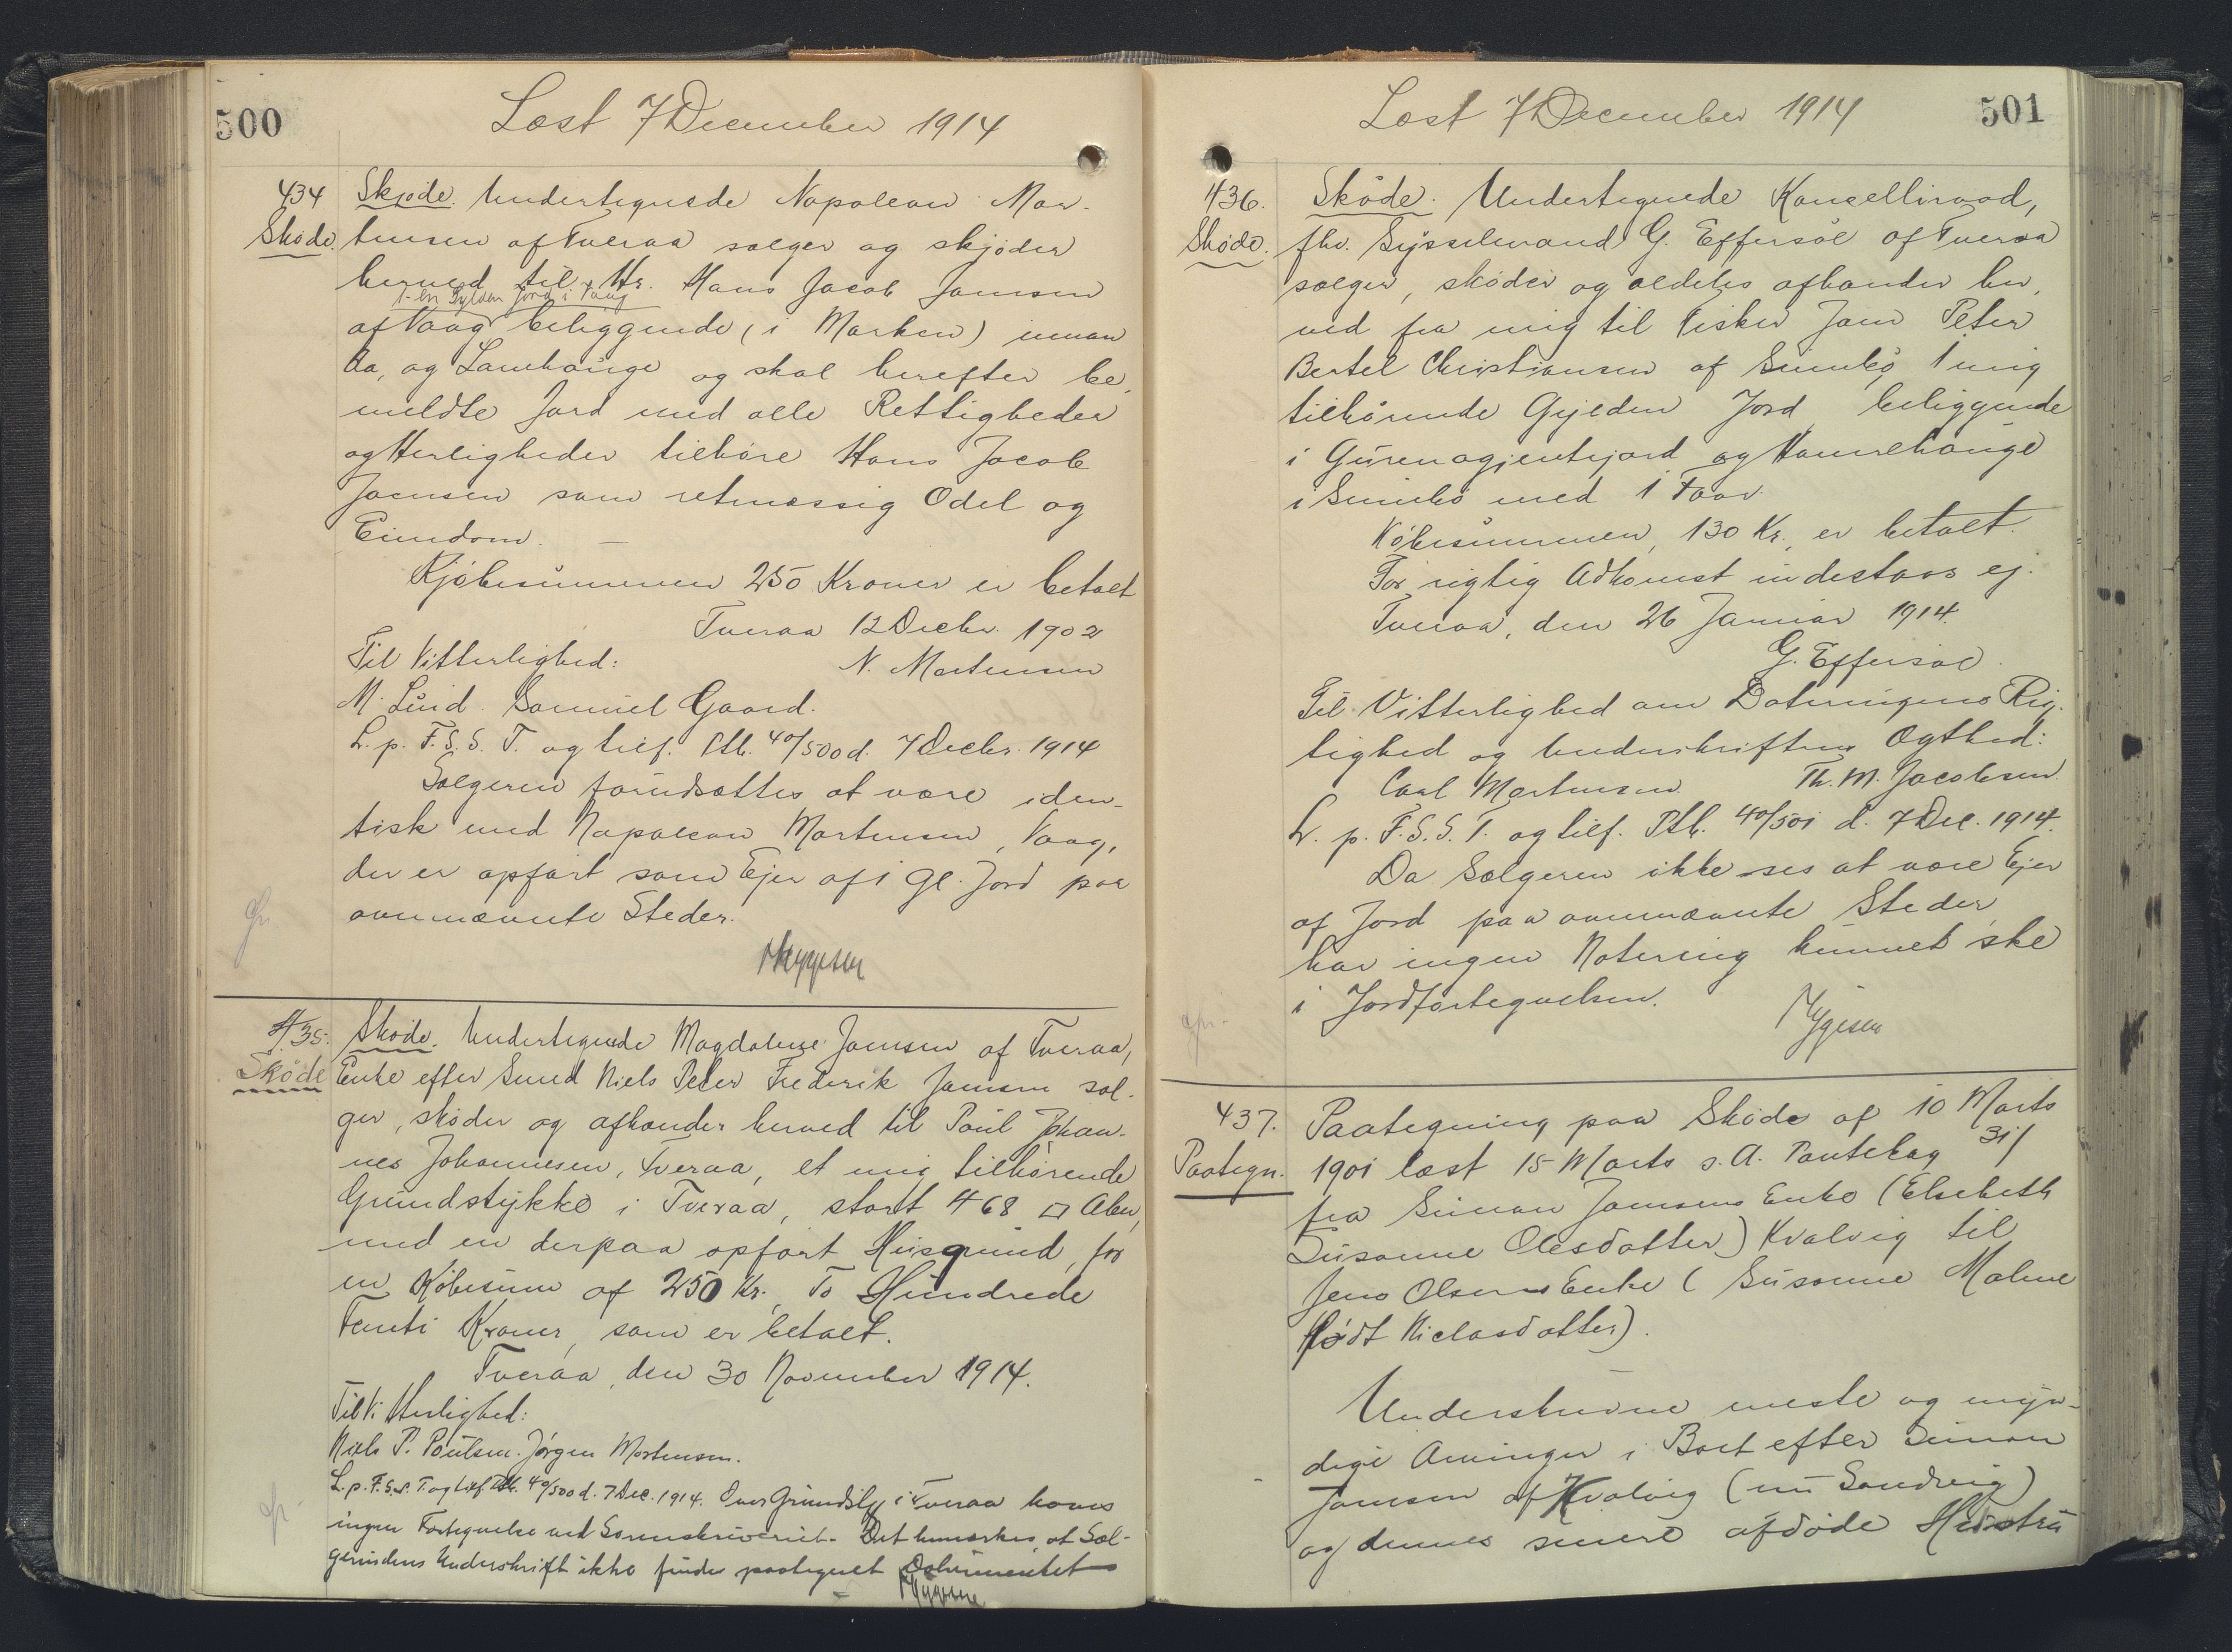 500
Læst 7 December 1914
434
Skøde.
Skjøde. Undertegnede Napoleon Mor-
tensen af Tveraa sælger og skjøder
herved til Hr. Hans Jacob Joensen
1 - en Gylden Jord i Vaag
af Vaag beliggende (i Marken) innan
Aa, og Lambhauge og skal herefter be-
meldte Jord med alle Rettigheder
og Herligheder tilhøre Hans Jacob
Joensen som retmæssig Odel og
Eiendom. —
Kjøbesummen 250 Kroner er betalt
Tveraa 12 Decbr. 1902
Til Vitterlighed:
N. Mortensen
M. Lund. Samuel Gaard.
L. p. F. S. S. T. og tilf. Ptb. 40/500 d. 7 Decbr. 1914
Sælgeren forudsættes at være iden-
tisk med Napoleon Mortensen, Vaag,
der er opført som Ejer af 1 Gl. Jord paa
ovennævnte Steder.
435.
Skøde
Skøde. Undertegnede Magdalene Joensen af Tveraa,
Enke efter Smed Niels Peter Frederik Joensen sæl-
ger, skøder og afhænder herved til Poul Johan-
nes Johannesen, Tveraa, et mig tilhørende
Grundstykke i Tveraa, stort 468 □ Alen,
med en derpaa opført Husgrund, for
en Købesum af 250 Kr., To Hundrede
Femti Kroner, som er betalt.
Tveraa, den 30 November 1914.
Til Vitterlighed:
Niels P. Poulsen. Jørgen Mortensen.
L. p. F. S. S. T. og tilf. Ptb. 40/500 d. 7 Dec. 1914. Over Grundstk i Tveraa haves
ingen Fortegnelse ved Sorenskriveriet. Det bemærkes, at Sæl-
gerindens Underskrift ikke findes paategnet Dokumentet
501
Læst 7 December 1914
436.
Skøde.
Skøde. Undertegnede Kancelliraad,
fhv. Sysselmand G. Effersøe af Tveraa
sælger, skøder og aldeles afhænder her-
ved fra mig til Fisker Joen Peter
Bertel Christiansen af Sumbø, 1 mig
tilhørende Gylden Jord, beliggende
i og Hamrehauge
i Sumbø med 1 Faar.
Købesummen, 130 Kr., er betalt.
For rigtig Adkomst indestaas ej.
Tveraa, den 26 Januar 1914.
G. Effersøe.
Til Vitterlighed om Dateringens Rig-
tighed og Underskriftens Ægthed:
Carl Mortensen Th. M. Jacobsen
L. p. F. S. S. T. og tilf. Ptb. 40/501 d. 7 Dec. 1914.
Da Sælgeren ikke ses at være Ejer
af Jord paa ovennævnte Steder,
har ingen Notering kunnet ske
i Jordfortegnelsen.
437.
Paategn.
Paategning paa Skøde af 10 Marts
1901 læst 15 Marts s. A. Pantebog 31/
fra Simon Joensens Enke (Elsebeth
Susanne Olesdatter) Kvalvig til
Jens Olsens Enke (Susanne Malene
født Niclasdatter).
Underskrevne eneste og myn-
dige Arvinger i Boet efter Simon
Joensen af Kvalvig (nu Sandvig)
og dennes senere afdøde Hustru